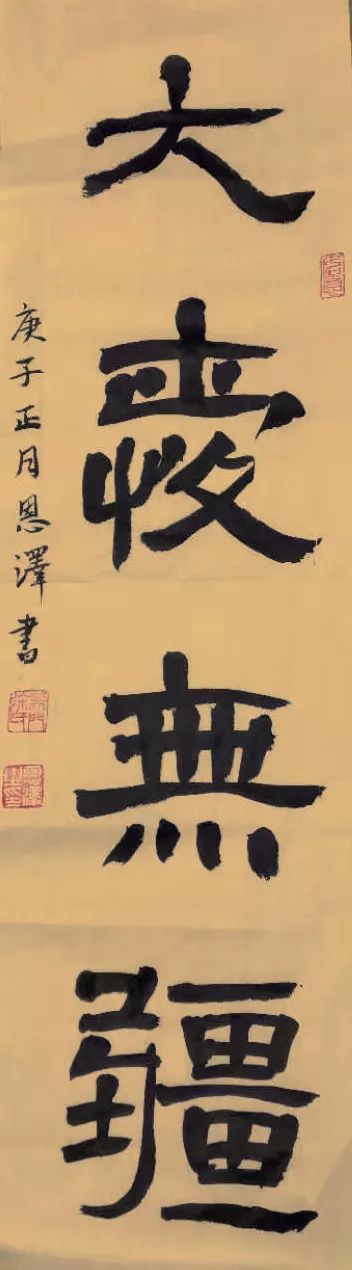 大愛無疆
庚子正月恩澤書